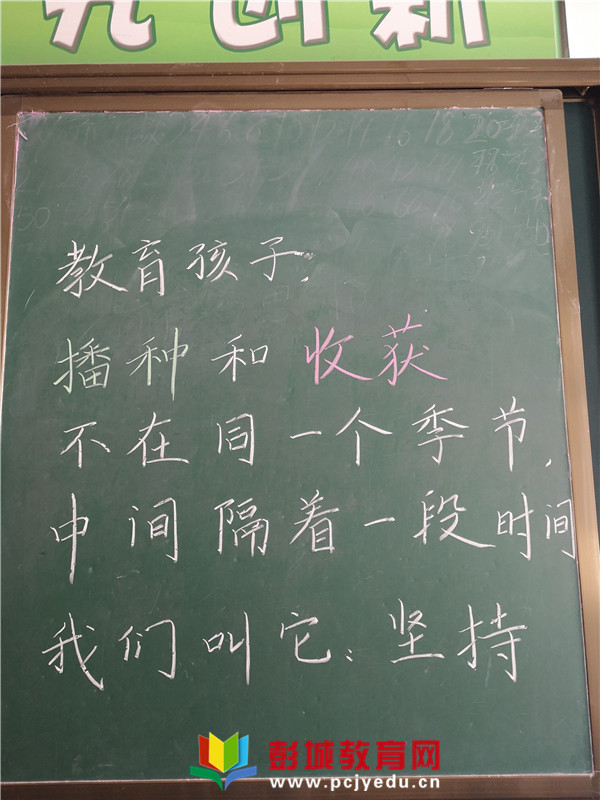 创新
教育孩子，
播种和收获
不在同一个季节，
中间隔着一段时间
我们叫它：坚持
彭城教育网
www.pcjyedu.cn